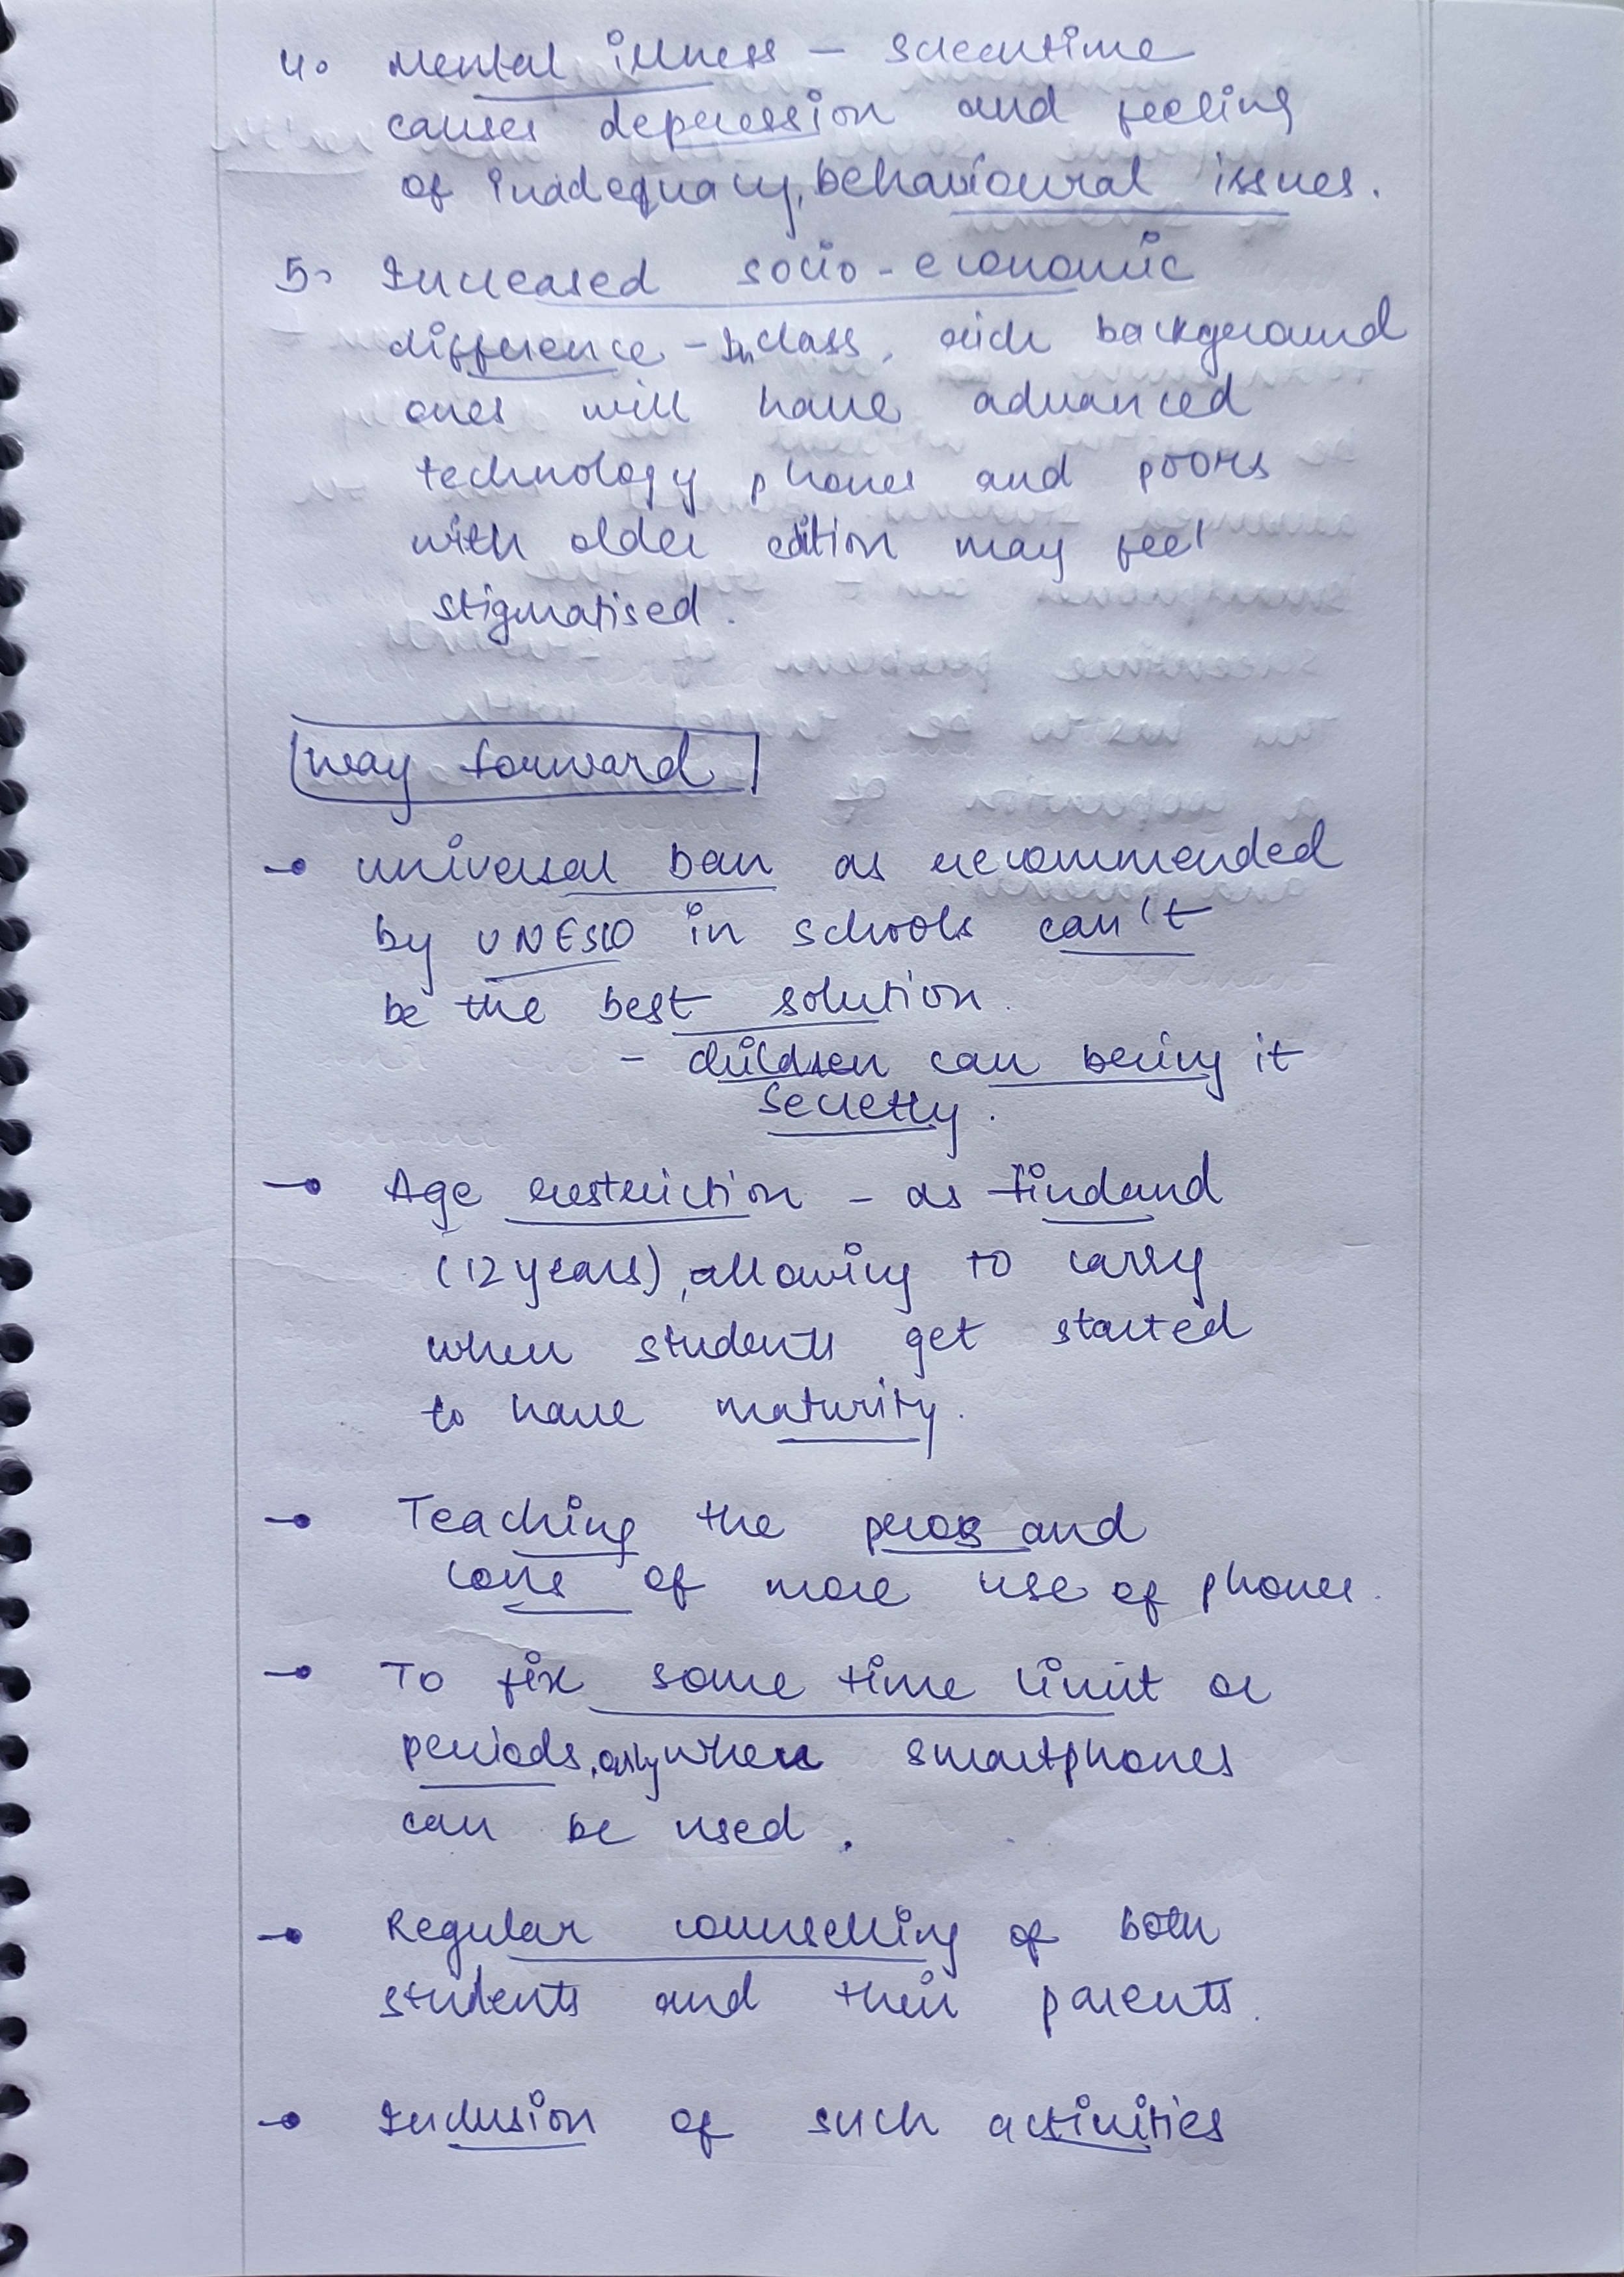 4. Mental illness - screentime
causes depression and feeling
of inadequacy, behavioural issues.
5. Increased socio-economic
difference - In class, rich background
ones will have advanced
technology phones and poors
with older edition may feel
stigmatised.
way forward
→ universal ban as recommended
by UNESCO in schools can't
be the best solution.
- children can bring it
secretly.
→ Age restriction - as Finland
(12 years), allowing to carry
when students get started
to have maturity.
→ Teaching the pros and
cons of more use of phones.
→ To fix some time limit or
periods, only when smartphones
can be used.
→ Regular counselling of both
students and their parents.
→ Inclusion of such activities